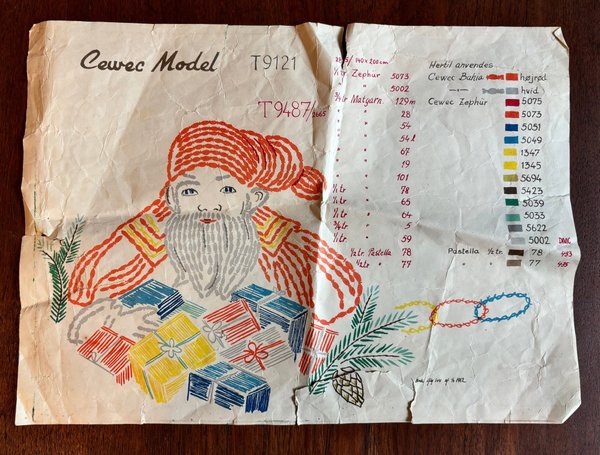 Cewec Model T9121
T9487/2665
/ 140 x 200 cm
Zephyr 5073
" 5002
3/4 tr Matgarn 129 m
" 28
" 54
" 54 l
" 67
" 19
" 101
1/2 tr " 78
1/2 tr " 65
1/2 tr " 64
3/4 tr " 5
1/2 tr " 59
1/2 tr Pastella 78
1/2 tr " 77
Hertil anvendes
Cewec Bahia højrød
hvid
Cewec Zephyr 5075
5073
5051
5049
1347
1345
5694
5423
5039
5033
5622
5002 DMC
Pastella 1/2 tr. 78
" 77